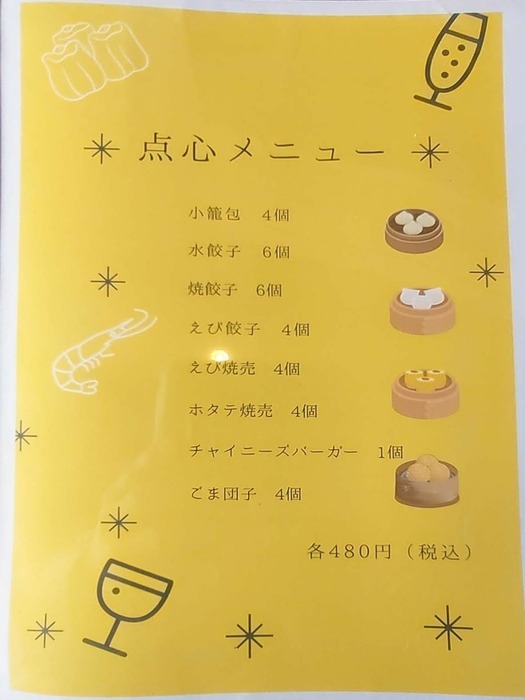 点心メニュー
小籠包 4個
水餃子 6個
焼餃子 6個
えび餃子 4個
えび焼売 4個
ホタテ焼売 4個
チャイニーズバーガー 1個
ごま団子 4個
各480円（税込）